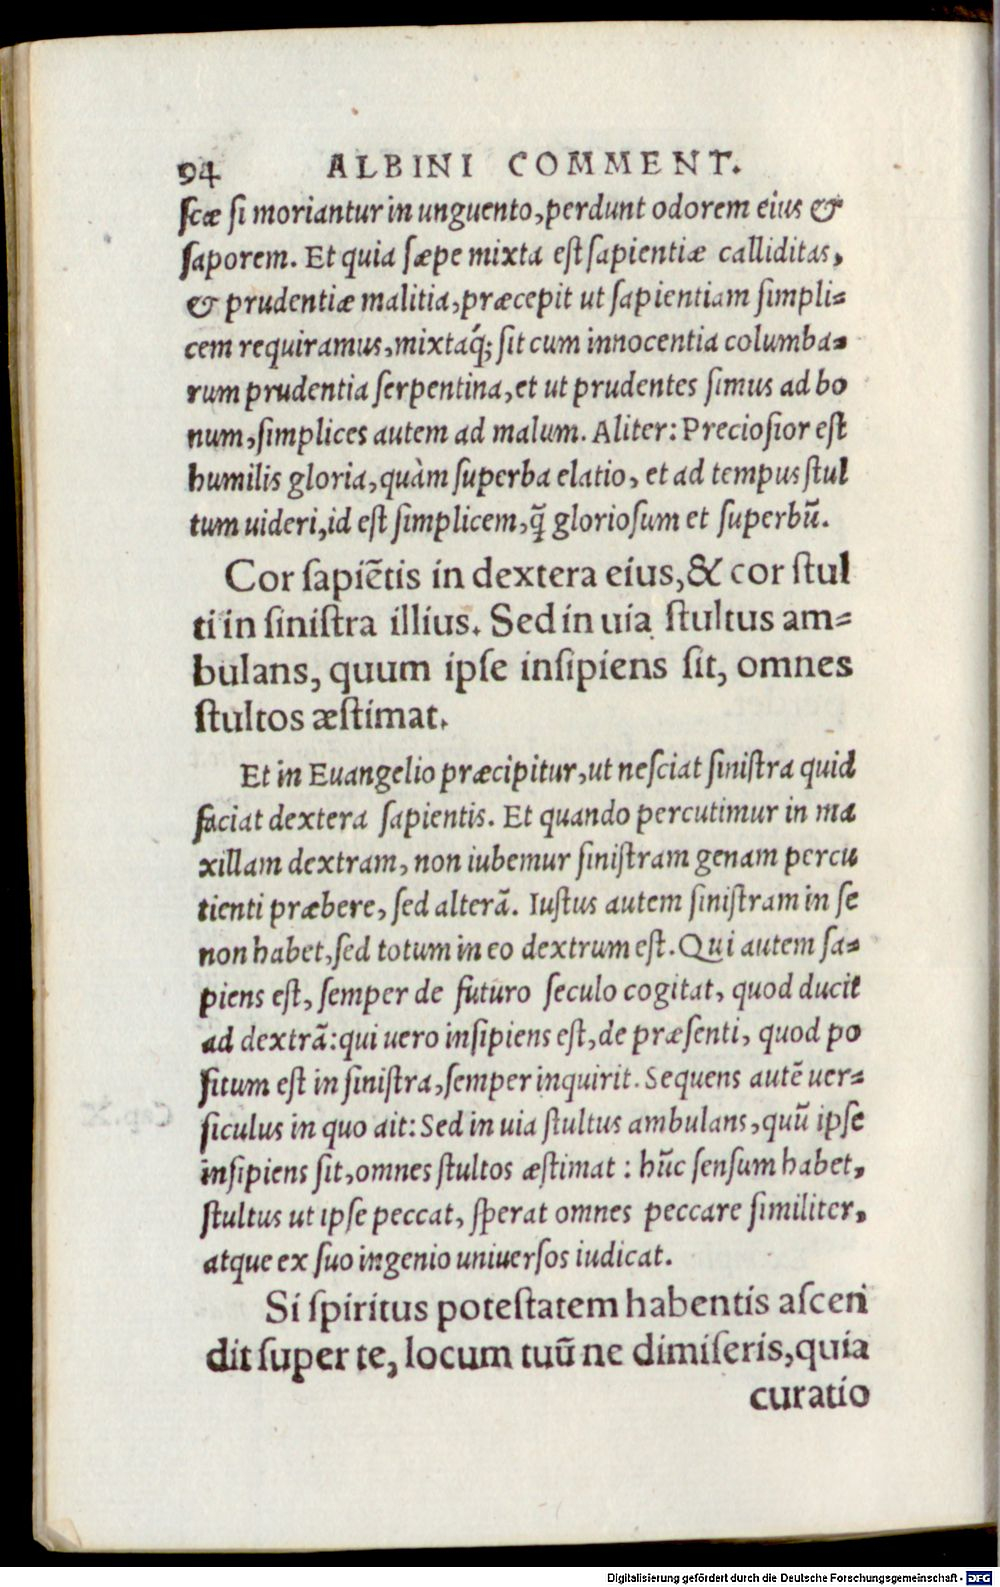 94 ALBINI COMMENT.
ſcæ ſi moriantur in unguento, perdunt odorem eius &
ſaporem. Et quia ſæpe mixta eſt ſapientiæ calliditas,
& prudentiæ malitia, præcepit ut ſapientiam ſimpli=
cem requiramus, mixtaq́; ſit cum innocentia columba=
rum prudentia ſerpentina, et ut prudentes ſimus ad bo
num, ſimplices autem ad malum. Aliter: Precioſior eſt
humilis gloria, quàm ſuperba elatio, et ad tempus ſtul
tum uideri, id eſt ſimplicem, q̃ glorioſum et ſuperbũ.
Cor ſapiẽtis in dextera eius, & cor ſtul
ti in ſiniſtra illius. Sed in uia ſtultus am=
bulans, quum ipſe inſipiens ſit, omnes
ſtultos æſtimat.
Et in Euangelio præcipitur, ut neſciat ſiniſtra quid
faciat dextera ſapientis. Et quando percutimur in ma
xillam dextram, non iubemur ſiniſtram genam percu
tienti præbere, ſed alterã. Iuſtus autem ſiniſtram in ſe
non habet, ſed totum in eo dextrum eſt. Qui autem ſa=
piens eſt, ſemper de futuro ſeculo cogitat, quod ducit
ad dextrã: qui uero inſipiens eſt, de præſenti, quod po
ſitum eſt in ſiniſtra, ſemper inquirit. Sequens autẽ uer=
ſiculus in quo ait: Sed in uia ſtultus ambulans, quũ ipſe
inſipiens ſit, omnes ſtultos æſtimat: hũc ſenſum habet,
ſtultus ut ipſe peccat, ſperat omnes peccare ſimiliter,
atque ex ſuo ingenio uniuerſos iudicat.
Si ſpiritus poteſtatem habentis aſcen
dit ſuper te, locum tuũ ne dimiſeris, quia
curatio
Digitalisierung gefördert durch die Deutsche Forschungsgemeinschaft - DFG